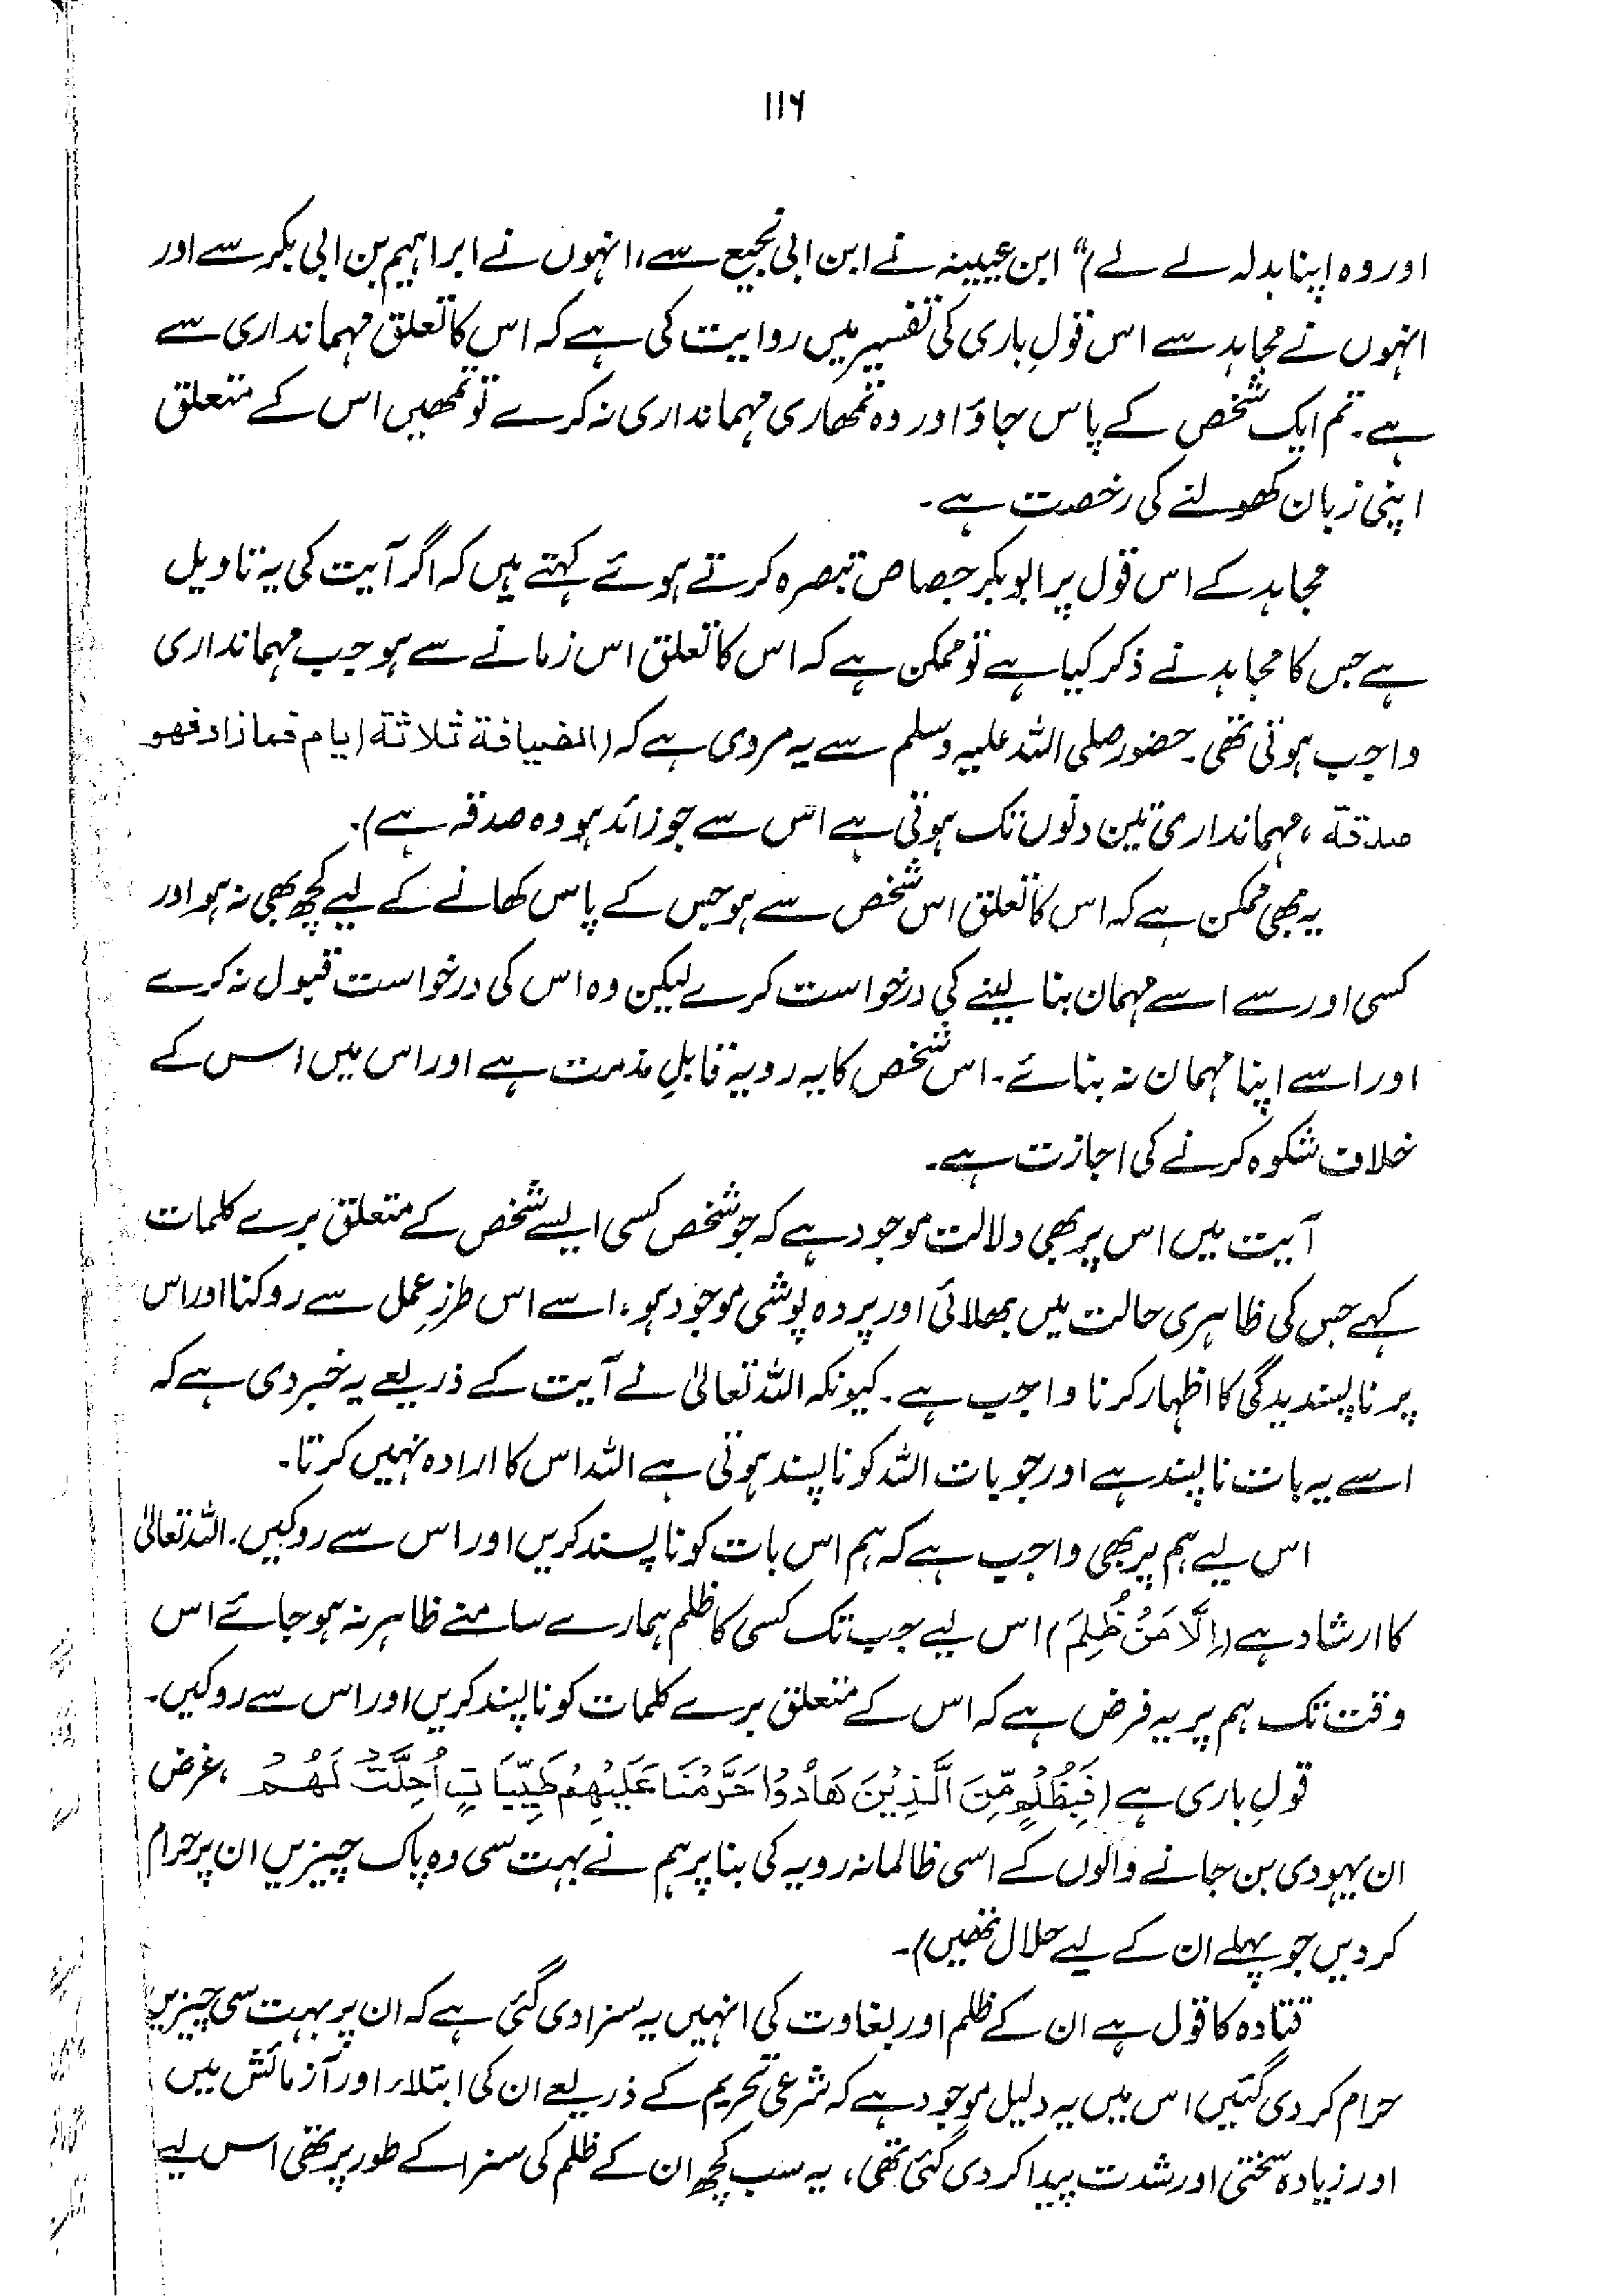 ۱۱۶
اور وہ اپنا بدلہ لے لے)“ ابن عیینہ نے ابن ابی نجیح سے، انہوں نے ابراہیم بن ابی بکر سے اور
انہوں نے مجاہد سے اس قولِ باری کی تفسیر میں روایت کی ہے کہ اس کا تعلق مہمانداری سے
ہے۔ تم ایک شخص کے پاس جاؤ اور وہ تمھاری مہمانداری نہ کرے تو تمھیں اس کے متعلق
اپنی زبان کھولنے کی رخصت ہے۔
مجاہد کے اس قول پر ابوبکر جصاص تبصرہ کرتے ہوئے کہتے ہیں کہ اگر آیت کی یہ تاویل
ہے جس کا مجاہد نے ذکر کیا ہے تو ممکن ہے کہ اس کا تعلق اس زمانے سے ہو جب مہمانداری
واجب ہوتی تھی۔ حضور صلی اللہ علیہ وسلم سے یہ مروی ہے کہ (الضیافة ثلاثة ایام فمازاد فھو
صدقة ، مہمانداری تین دنوں تک ہوتی ہے اس سے جو زائد ہو وہ صدقہ ہے)۔
یہ بھی ممکن ہے کہ اس کا تعلق اس شخص سے ہو جس کے پاس کھانے کے لیے کچھ بھی نہ ہو اور
کسی اور سے اسے مہمان بنا لینے کی درخواست کرے لیکن وہ اس کی درخواست قبول نہ کرے
اور اسے اپنا مہمان نہ بنائے۔ اس شخص کا یہ رویہ قابلِ مذمت ہے اور اس میں اس کے
خلاف شکوہ کرنے کی اجازت ہے۔
آیت میں اس پر بھی دلالت موجود ہے کہ جو شخص کسی ایسے شخص کے متعلق برے کلمات
کہے جس کی ظاہری حالت میں بھلائی اور پردہ پوشی موجود ہو، اسے اس طرزِ عمل سے روکنا اور اس
پر ناپسندیدگی کا اظہار کرنا واجب ہے۔ کیونکہ اللہ تعالیٰ نے آیت کے ذریعے یہ خبر دی ہے کہ
اسے یہ بات ناپسند ہے اور جو بات اللہ کو ناپسند ہوتی ہے اللہ اس کا ارادہ نہیں کرتا۔
اس لیے ہم پر بھی واجب ہے کہ ہم اس بات کو ناپسند کریں اور اس سے روکیں۔ اللہ تعالیٰ
کا ارشاد ہے (اِلَّا مَنْ ظُلِمَ) اس لیے جب تک کسی کا ظلم ہمارے سامنے ظاہر نہ ہو جائے اس
وقت تک ہم پر یہ فرض ہے کہ اس کے متعلق برے کلمات کو ناپسند کریں اور اس سے روکیں۔
قولِ باری ہے (فَبِظُلْمٍ مِّنَ الَّذِیْنَ ھَادُوْا حَرَّمْنَا عَلَیْھِمْ طَیِّبَاتٍ اُحِلَّتْ لَھُمْ ، غرض
ان یہودی بن جانے والوں کے اسی ظالمانہ رویہ کی بنا پر ہم نے بہت سی وہ پاک چیزیں ان پر حرام
کر دیں جو پہلے ان کے لیے حلال تھیں)۔
قتادہ کا قول ہے ان کے ظلم اور بغاوت کی انہیں یہ سزا دی گئی ہے کہ ان پر بہت سی چیزیں
حرام کر دی گئیں اس میں یہ دلیل موجود ہے کہ شرعی تحریم کے ذریعے ان کی ابتلاء اور آزمائش میں
اور زیادہ سختی اور شدت پیدا کر دی گئی تھی، یہ سب کچھ ان کے ظلم کی سزا کے طور پر تھی اس لیے